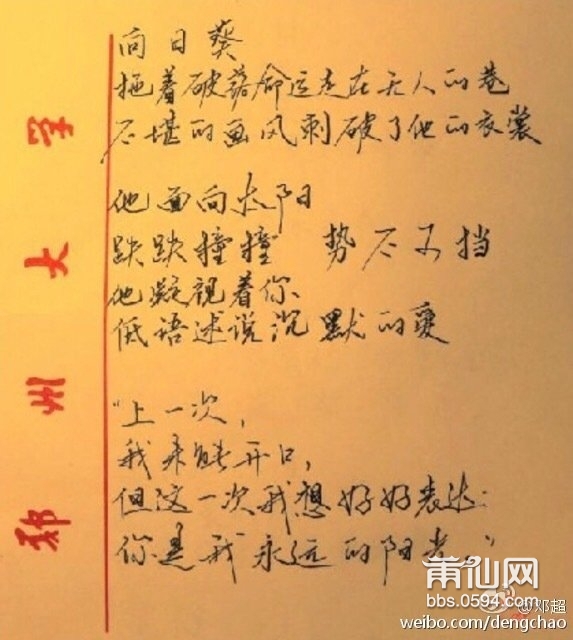 郑州大学
向日葵
拖着破落命运走在无人的巷
不堪的画风刺破了他的衣裳
他面向太阳
跌跌撞撞 势不可挡
他凝视着你
低语述说沉默的爱
“上一次,
我未能开口,
但这一次我想好好表达:
你是我永远的阳光。”
莆仙网
bbs.0594.com
@邓超
weibo.com/dengchao